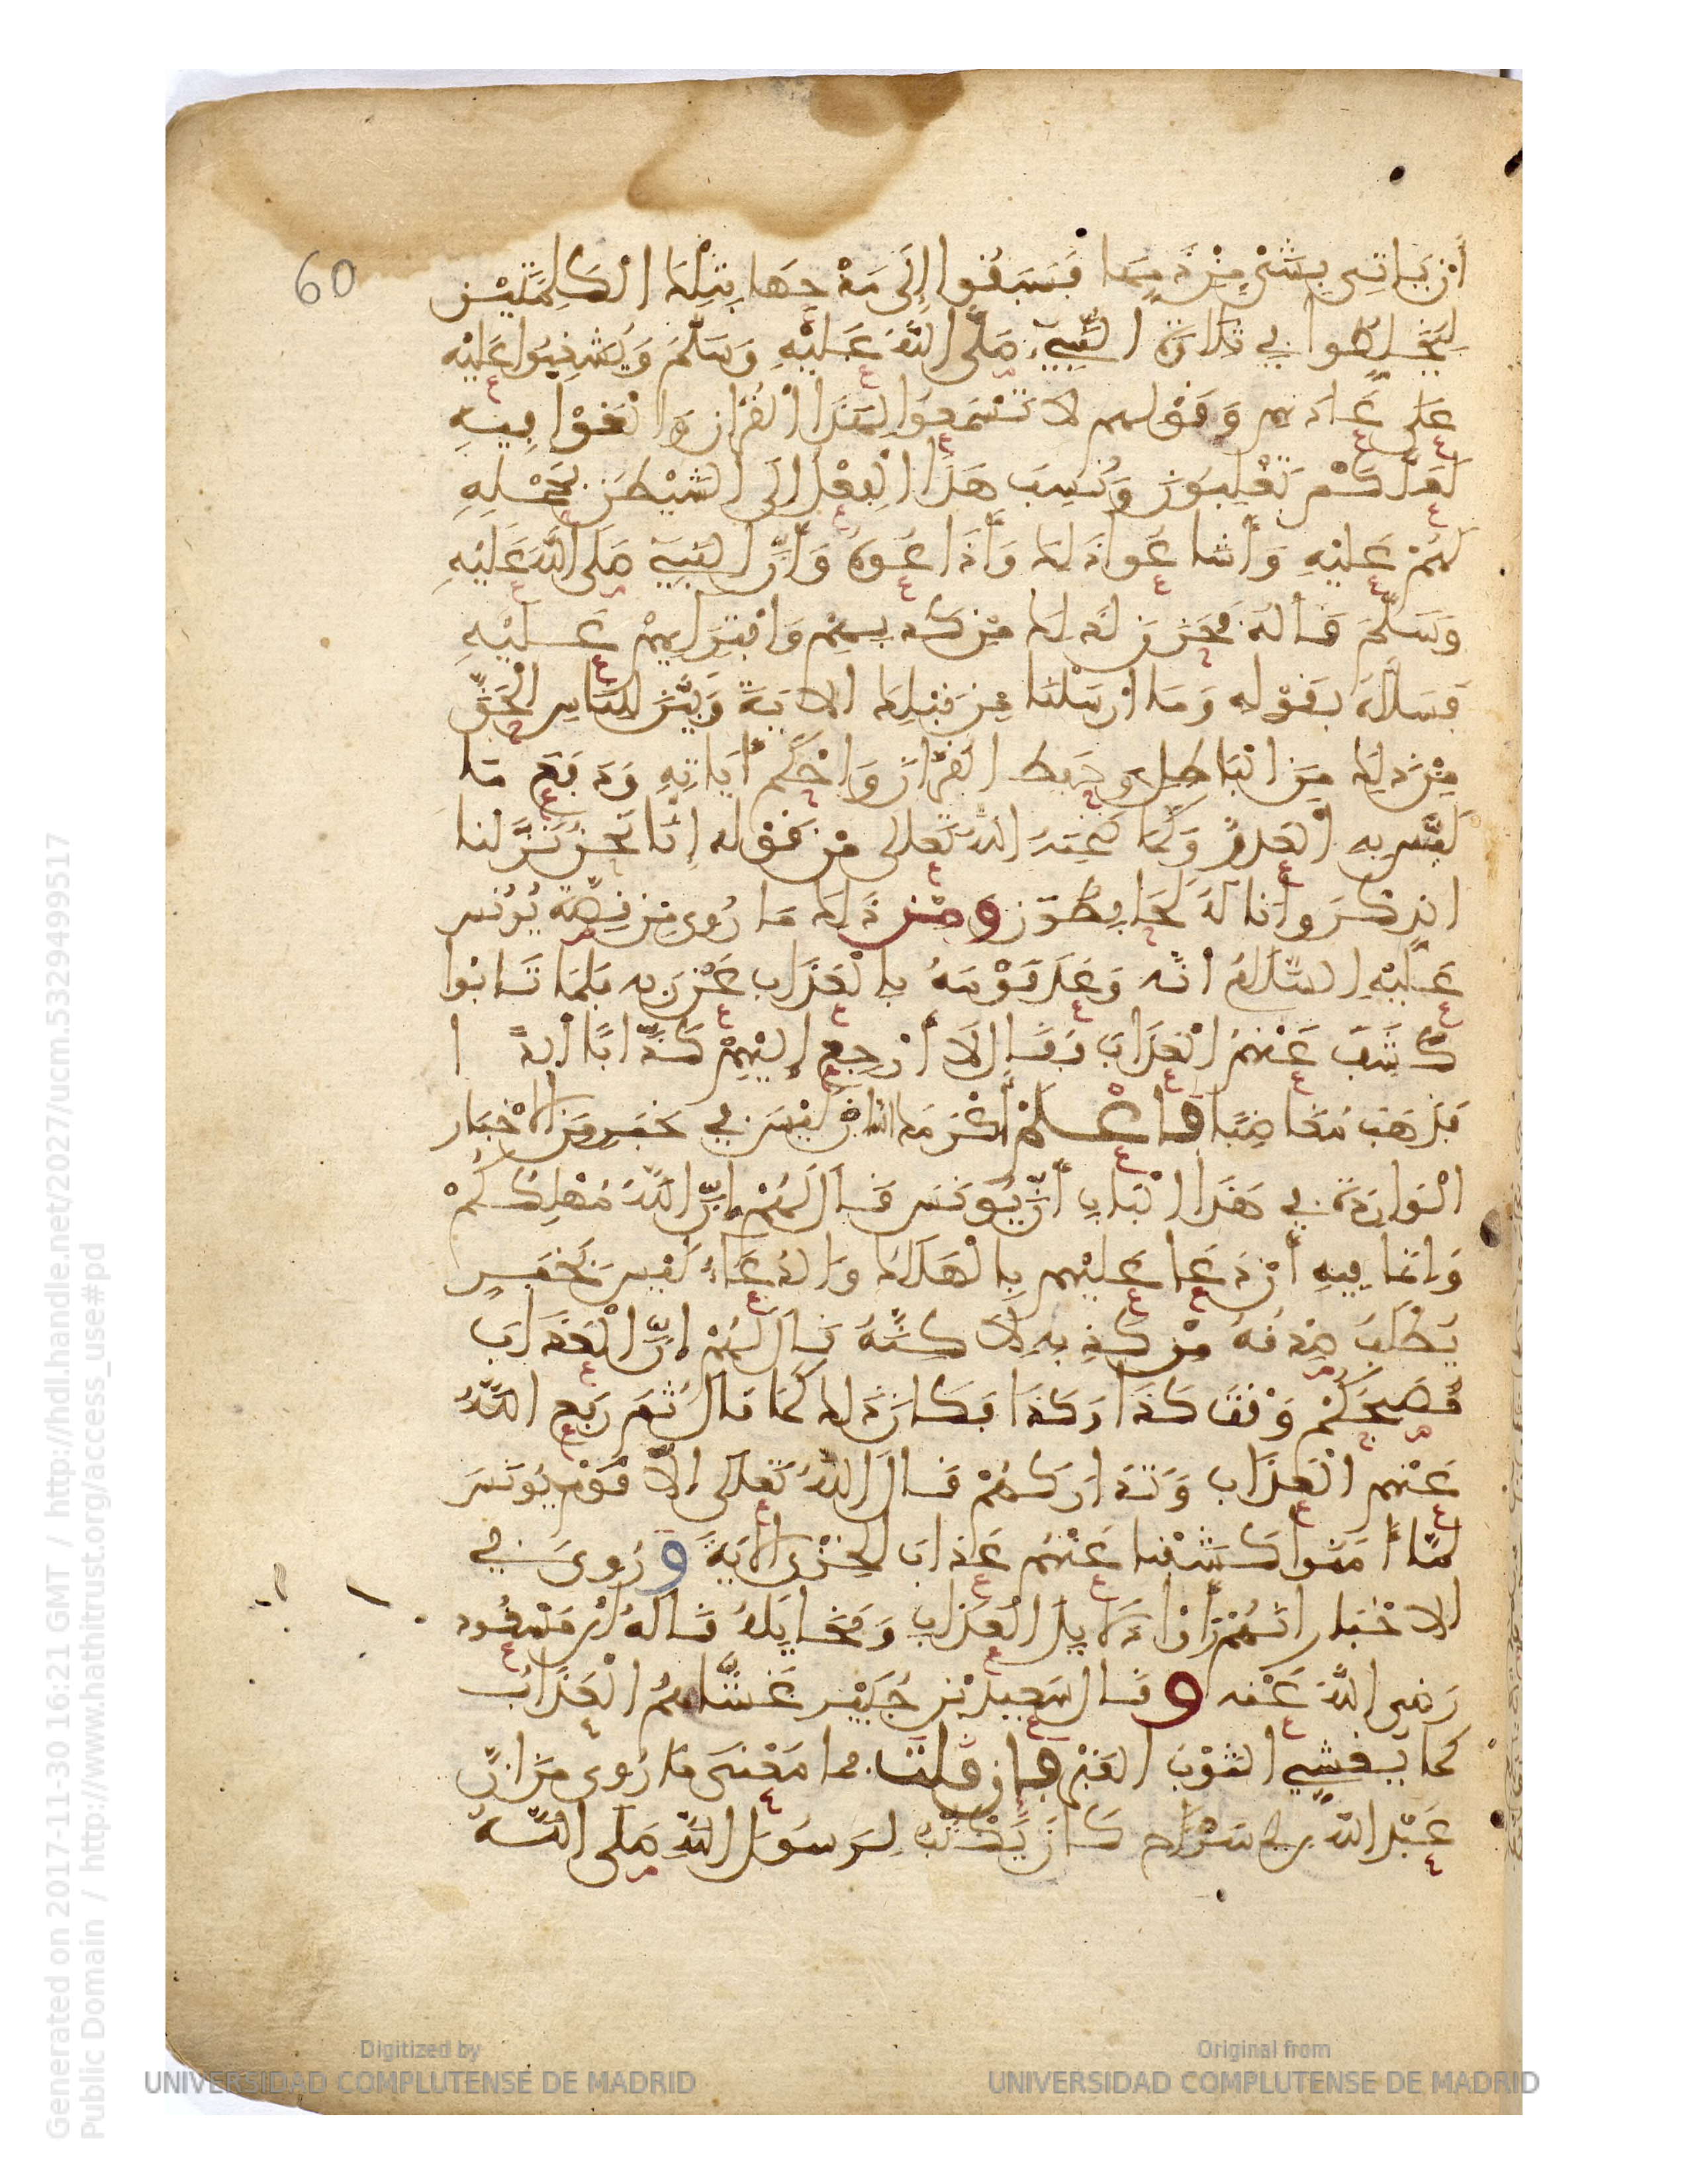 60
أَنْ يَأتِيَ بِشَيْءٍ مِنْ ذَمِّهَا فَسَبَقُوا إِلَى مَدْحِهَا بِتِلْكَ الْكَلِمَتَيْنِ
لِيُخَلِّطُوا فِي تِلَاوَةِ النَّبِيِّ صَلَّى اللهُ عَلَيْهِ وَسَلَّمَ وَيُشَنِّعُوا عَلَيْهِ
عَلَى عَادَتِهِم وَقَوْلِهِم لَا تَسْمَعُوا لِهَذَا الْقُرْآنِ وَالْغَوْا فِيهِ
لَعَلَّكُمْ تَغْلِبُونَ وَنُسِبَ هَذَا الْفِعْلُ إِلَى الشَّيْطَنِ لِحَمْلِهِ
لَهُمْ عَلَيْهِ وَأَشَاعُوا ذَلِكَ وَأَذَاعُوهُ وَأَنَّ النَّبِيَّ صَلَّى اللهُ عَلَيْهِ
وَسَلَّمَ قَالَهُ فَحَزِنَ لِذَلِكَ مِنْ كَذِبِهِمْ وَافْتِرَائِهِمْ عَلَيْهِ
فَسَلَّاهُ بِقَوْلِهِ وَمَا أَرْسَلْنَا مِن قَبْلِكَ الايَةَ وَبَيَّنَ لِلنَّاسِ الْحَقَّ
مِنْ ذَلِكَ مِنَ الْبَاطِلِ وَحَفِظَ الْقُرْآنَ وَأَحْكَمَ آيَاتِهِ وَدَفَعَ مَا
لَبَّسَ بِهِ الْعَدُوُّ وَكَمَا ضَمِنَهُ اللهُ تَعَالَى مِنْ قَوْلِهِ إِنَّا نَحْنُ نَزَّلْنَا
الذِّكْرَ وَإِنَّا لَهُ لَحَافِظُونَ وَمِنْ ذَلِكَ مَا رُوِيَ مِن قِصَّةِ يُونُسَ
عَلَيْهِ السَّلَامُ أَنَّهُ وَعَدَ قَوْمَهُ بِالْعَذَابِ عَنْ رَبِّهِ فَلَمَّا تَابُوا
كُشِفَ عَنْهُمُ الْعَذَابُ فَقَالَ لَا أَرْجِعُ إِلَيْهِمْ كَذَّابًا أَبَدًا
فَذَهَبَ مُغَاضِبًا فَاعْلَمْ أَكْرَمَكَ اللهُ أَنْ لَيْسَ فِي خَبَرٍ مِنَ الْأَخْبَارِ
الْوَارِدَةِ فِي هَذَا الْبَابِ أَنَّ يُونُسَ قَالَ لَهُمْ إِنَّ اللهَ مُهْلِكُكُمْ
وَإِنَّمَا فِيهِ أَنْ دَعَا عَلَيْهِم بِالْهَلَاكِ وَالدُّعَاءُ لَيْسَ بِخَبَرٍ
يُطْلَبُ صِدْقُهُ مِنْ كَذِبِهِ لَاكِنَّهُ قَالَ لَهُمْ إِنَّ الْعَذَابَ
مُصَبِّحُكُمْ وَقْتَ كَذَا وَكَذَا فَكَانَ ذَلِكَ كَمَا قَالَ ثُمَّ رَفَعَ اللهُ
عَنْهُمُ الْعَذَابَ وَتَدَارَكَهُمْ قَالَ اللهُ تَعَالَى إِلَّا قَوْمَ يُونُسَ
لَمَّا آمَنُوا كَشَفْنَا عَنْهُمْ عَذَابَ الْخِزْيِ الْآيَةَ وَرُوِيَ فِي
الاخْبَارِ أَنَّهُمْ رَأَوْا دَلَايِلَ الْعَذَابِ وَمَخَايِلَهُ قَالَهُ ابْنُ مَسْعُود
رَضِيَ اللهُ عَنْهُ وَقَالَ سَعِيدُ بْنُ جُبَيْرٍ غَشَّاهُمُ الْعَذَابُ
كَمَا يُغَشِّي الثَّوْبُ الْقَبْرَ فَإِن قُلْتَ فَمَا مَعْنَى مَا رُوِيَ مِنْ أَنَّ
عَبْدَ اللهِ بْنَ أَبِي سَرْحٍ كَانَ يَكْتُبُ لِرَسُولِ اللهِ صَلَّى اللهُ
Generated on 2017-11-30 16:21 GMT / http://hdl.handle.net/2027/ucm.5329499517
Public Domain / http://www.hathitrust.org/access_use#pd
Digitized by
UNIVERSIDAD COMPLUTENSE DE MADRID
Original from
UNIVERSIDAD COMPLUTENSE DE MADRID